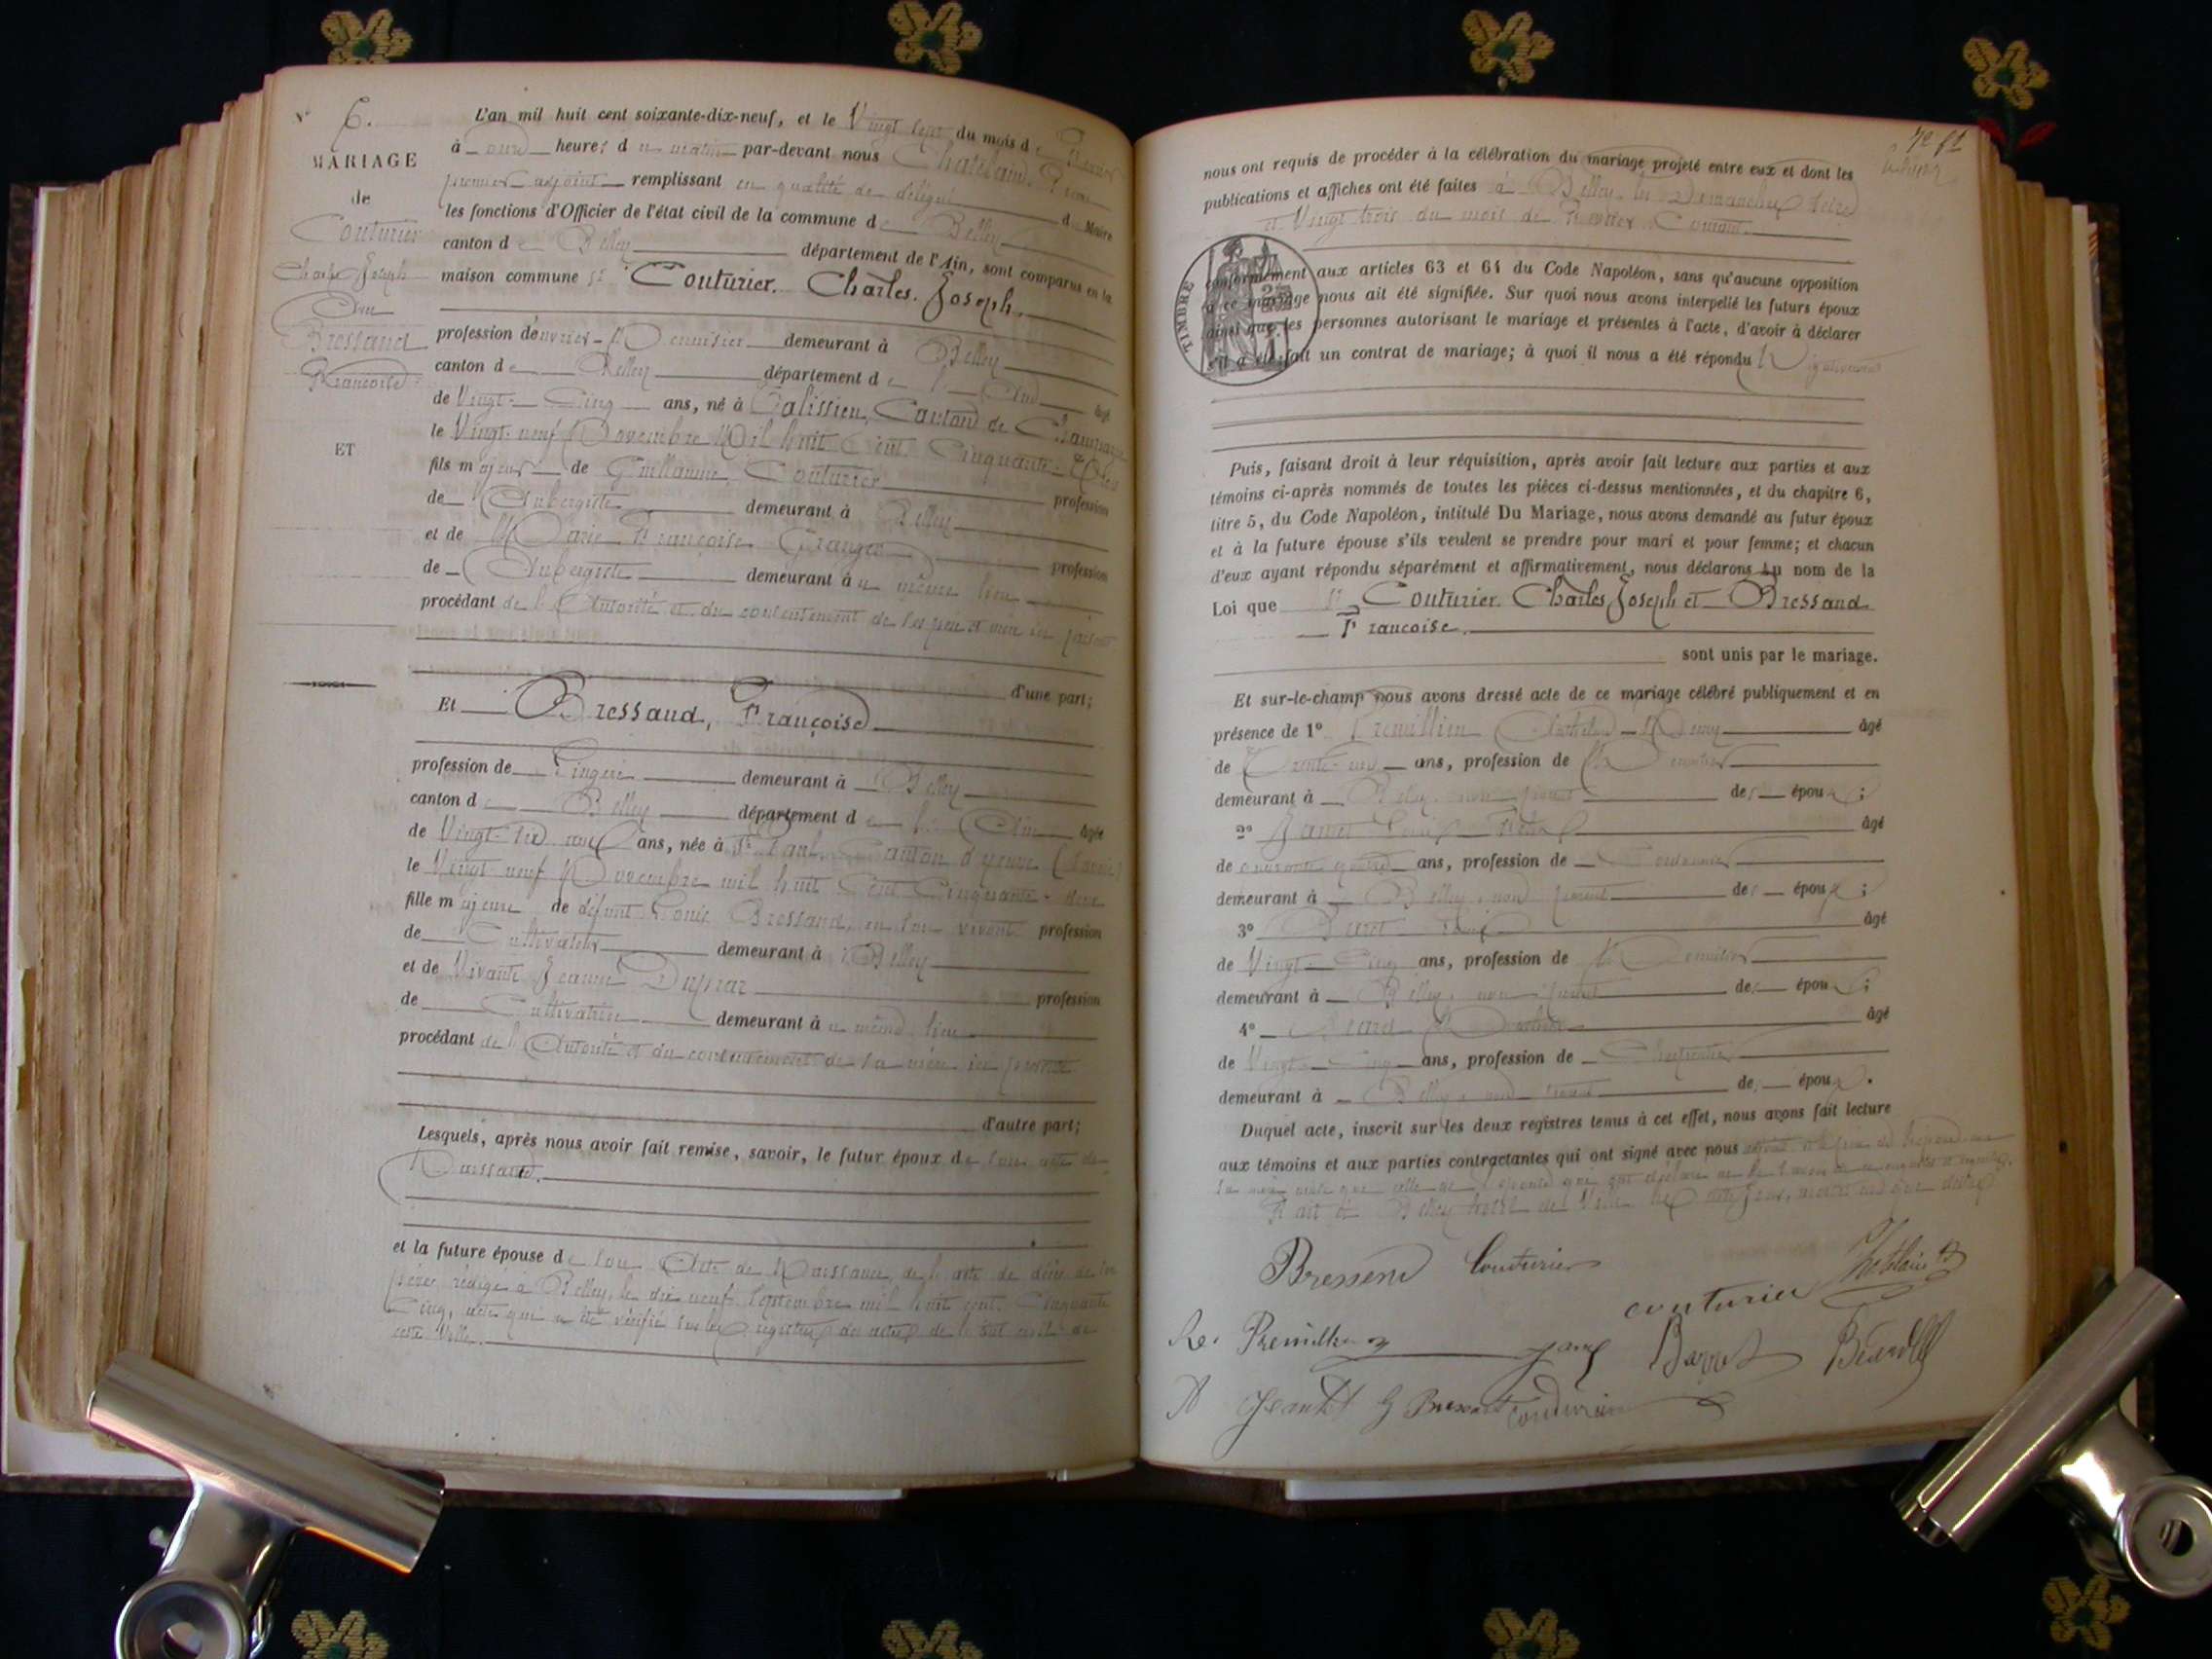 N° 6.
MARIAGE
de
Couturier
Charles Joseph
Bressand
Françoise
ET
L'an mil huit cent soixante-dix-neuf, et le Vingt sept du mois de Février
à onze heures du matin par-devant nous
premier adjoint remplissant en qualité de délégué du Maire
les fonctions d'Officier de l'état civil de la commune de Belley
canton de Belley département de l'Ain, sont comparus en la
maison commune Sr Couturier. Charles. Joseph.
profession d'ouvrier Menuisier demeurant à Belley
canton de Belley département de l'Ain âgé
de Vingt-Cinq ans, né à Talissieu, Canton de Champagne
le Vingt-neuf Novembre Mil huit Cent Cinquante-
fils majeur de Guillaume Couturier profession
de Aubergiste demeurant à Belley
et de Marie Françoise Granger profession
de Aubergiste demeurant au même lieu
procédant de l'Autorité et du consentement de ses père et mère ici
d'une part;
Et Bressand, Françoise
profession de Lingère demeurant à Belley
canton de Belley département de l'Ain âgée
de Vingt-six ans, née à St Paul, Canton d'yenne (Savoie)
le Vingt-neuf Novembre mil huit Cent Cinquante-deux
fille majeure de défunt Bressand, en son vivant profession
de Cultivateur demeurant à Belley
et de Vivante Jeanne profession
de Cultivatrice demeurant au même lieu
procédant de l'Autorité et du consentement de sa mère ici présente
d'autre part;
Lesquels, après nous avoir fait remise, savoir, le futur époux de son acte de
Naissance.
et la future épouse de son Acte de Naissance, de l'acte de décès de son
père, rédigé à Belley, le dix neuf Septembre mil huit cent Cinquante
Cinq, acte qui a été vérifié sur les registres des actes de l'état civil de
cette Ville.
nous ont requis de procéder à la célébration du mariage projeté entre eux et dont les
publications et affiches ont été faites à Belley les Dimanches Seize
et Vingt trois du mois de Février Courant.
TIMBRE
conformément aux articles 63 et 64 du Code Napoléon, sans qu'aucune opposition
à ce mariage nous ait été signifiée. Sur quoi nous avons interpellé les futurs époux
ainsi que les personnes autorisant le mariage et présentes à l'acte, d'avoir à déclarer
s'il a été fait un contrat de mariage; à quoi il nous a été répondu Négativement
Puis, faisant droit à leur réquisition, après avoir fait lecture aux parties et aux
témoins ci-après nommés de toutes les pièces ci-dessus mentionnées, et du chapitre 6,
titre 5, du Code Napoléon, intitulé Du Mariage, nous avons demandé au futur époux
et à la future épouse s'ils veulent se prendre pour mari et pour femme; et chacun
d'eux ayant répondu séparément et affirmativement, nous déclarons au nom de la
Loi que Sr Couturier. Charles Joseph et Bressand
Francoise.
sont unis par le mariage.
Et sur-le-champ nous avons dressé acte de ce mariage célébré publiquement et en
présence de 1° âgé
de Trente- ans, profession de Menuisier
demeurant à Belley, non parent des époux;
2° Janet Louis âgé
de quarante quatre ans, profession de Cordonnier
demeurant à Belley, non parent des époux;
3° âgé
de Vingt-Cinq ans, profession de Menuisier
demeurant à Belley, non parent des époux;
4° âgé
de Vingt-Cinq ans, profession de Charpentier
demeurant à Belley, non parent des époux.
Duquel acte, inscrit sur les deux registres tenus à cet effet, nous avons fait lecture
aux témoins et aux parties contractantes qui ont signé avec nous
Fait à Belley hôtel de Ville les
Couturier
couturier
Barret